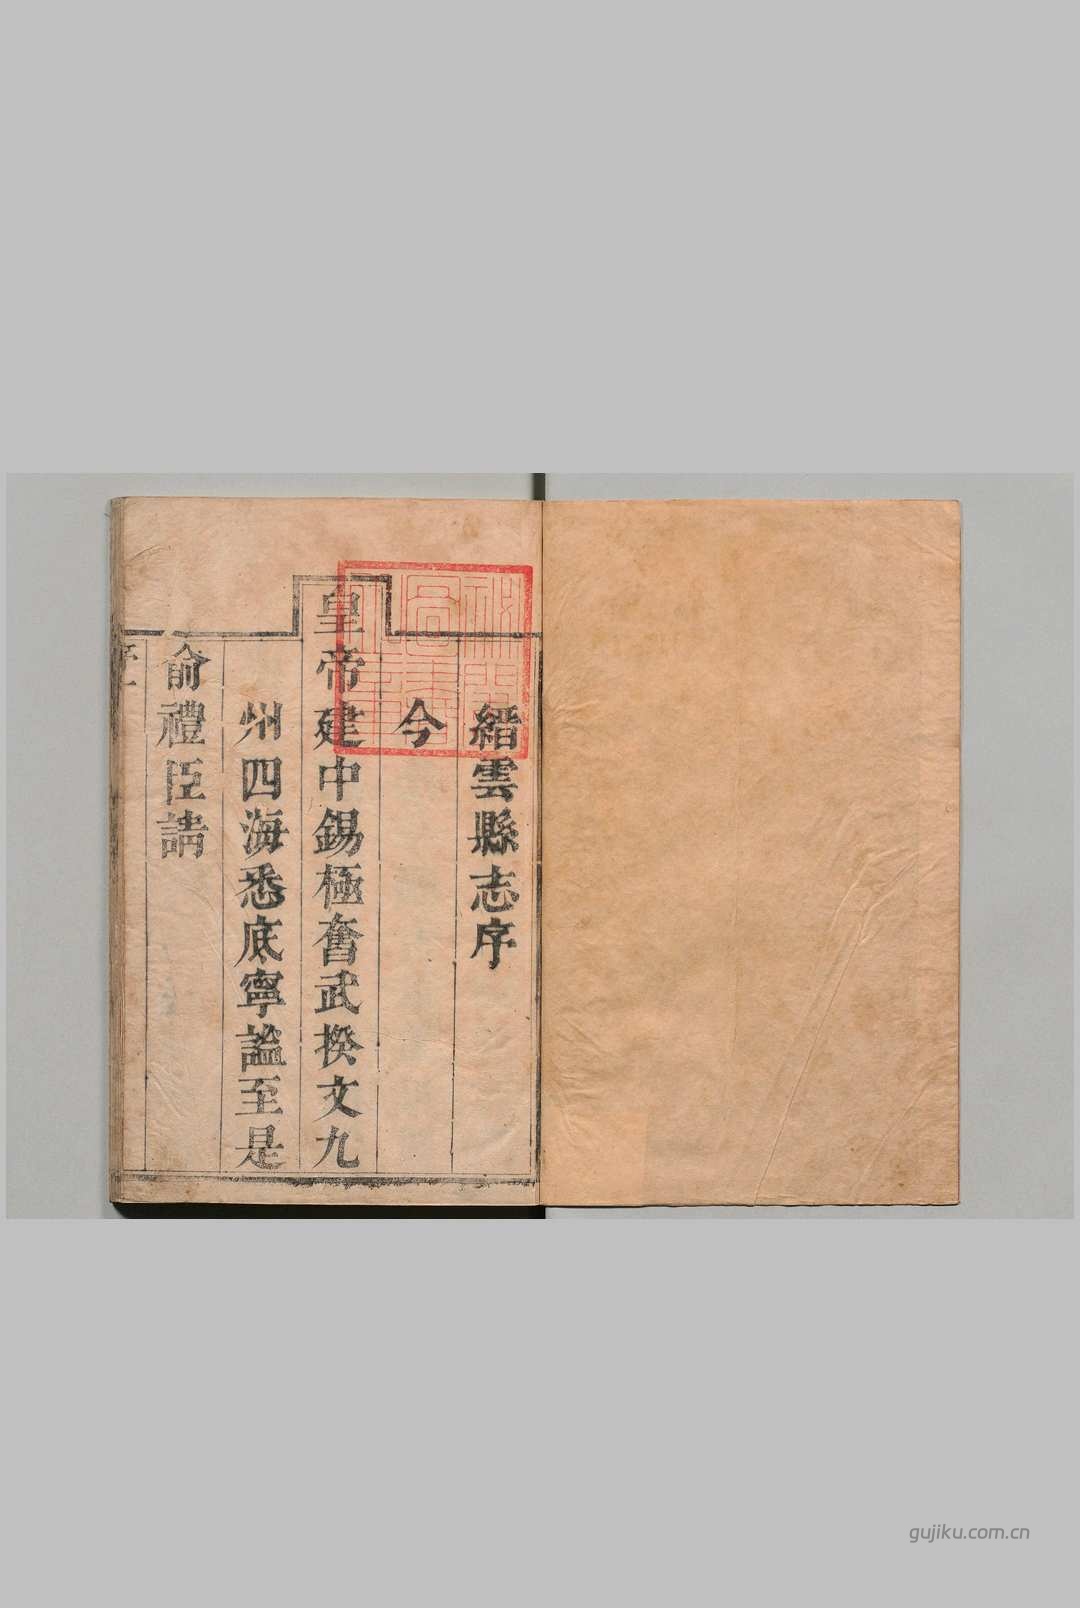 縉雲縣志序
今
皇帝建中錫極奮武揆文九
州四海悉底寧謐至是
俞禮臣請
序一
gujiku.com.cn